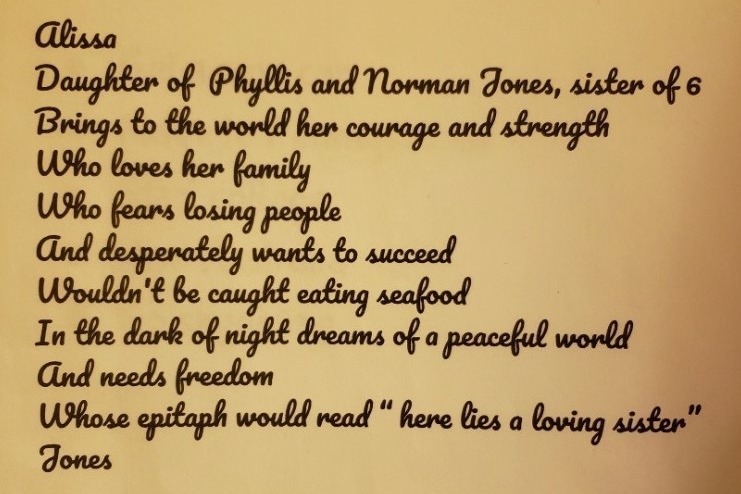 Alissa
Daughter of Phyllis and Norman Jones, sister of 6
Brings to the world her courage and strength
Who loves her family
Who fears losing people
And desperately wants to succeed
Wouldn't be caught eating seafood
In the dark of night dreams of a peaceful world
And needs freedom
Whose epitaph would read “ here lies a loving sister”
Jones